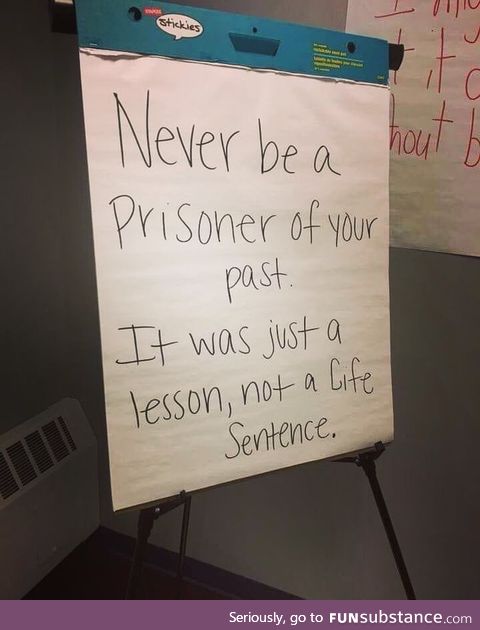 STAPLES
stickies
Never be a
Prisoner of your
past.
It was just a
lesson, not a life
Sentence.
it
hout
Seriously, go to FUNsubstance.com